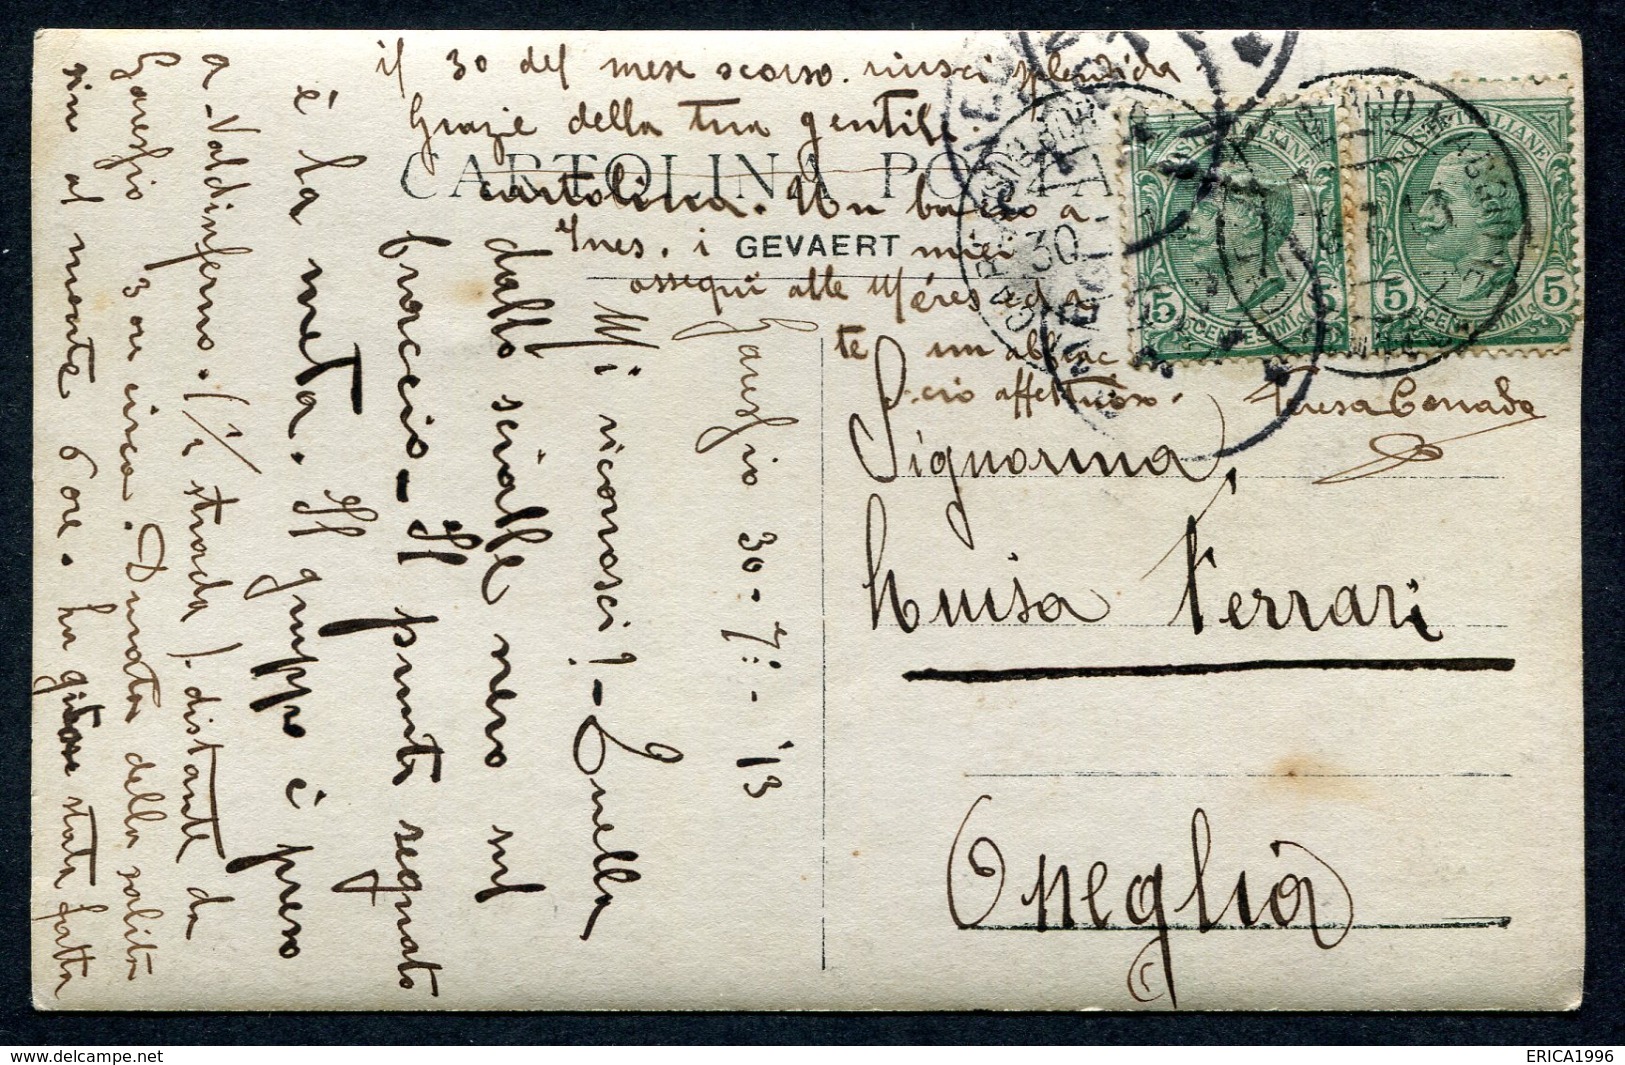 Garessio 30-7-'13
Mi riconosci? - Quella
dallo scialle nero sul
braccio - Il punto segnato
è la meta. Il gruppo è preso
a Valdinferno. (1/2 strada). distante da
Garessio 3 ore circa. Durata della salita
sin al monte 6 ore. ha gita stata fatta
il 30 del mese scorso. riuscì splendida.
Grazie della tua gentile
cartolina. Un bacio a
Ines, i miei
ossequi alle ed a
te un abbrac
cio affettuoso. Teresa Corrado
CARTOLINA POSTA
GEVAERT
POSTE ITALIANE
5 CENTESIMI 5
POSTE ITALIANE
5 CENTESIMI 5
30
13
Signorina
Luisa Ferrari
Oneglia
ERICA1996